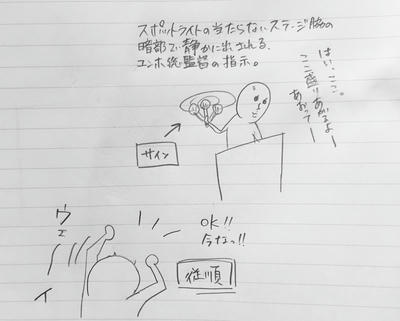 スポットライトの当たらないステージ脇の
暗部で静かに出される、
ユンホ後監督の指示。
はい、ここ。
ここ盛りあがるよー
あおってー
サイン
OK!!
今なっ!!
ウェ
イ
従順